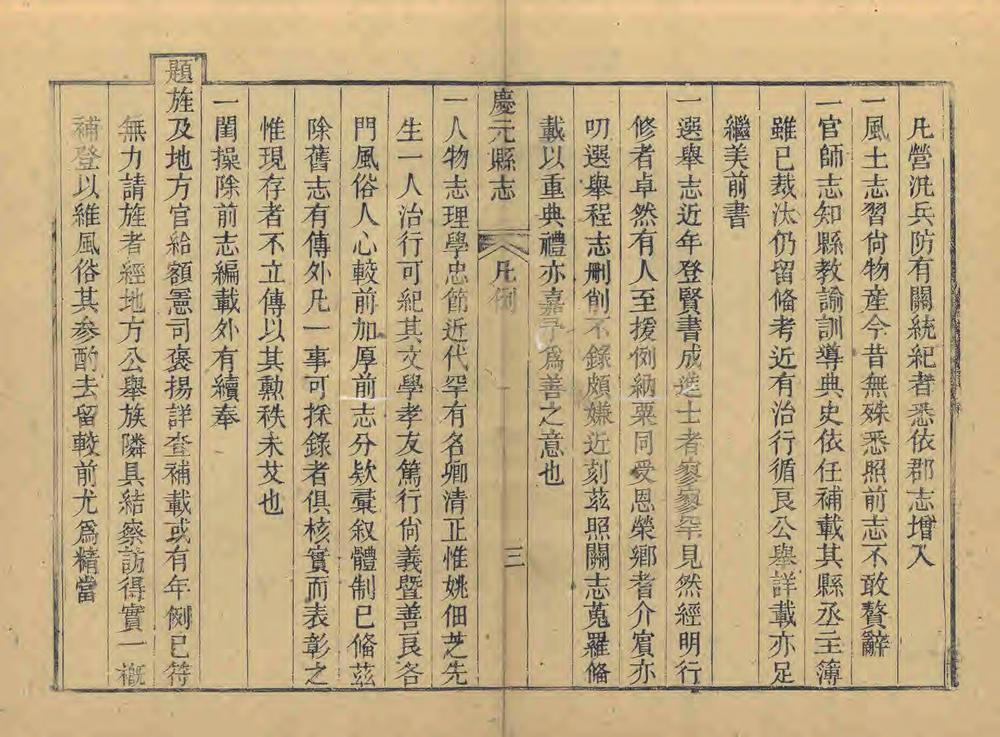 凡營汛兵防有關統紀者悉依郡志增入
一風土志習尙物産今昔無殊悉照前志不敢贅辭
一官師志知縣教諭訓導典史依任補載其縣丞主簿
雖已裁汰仍留俻考近有治行循良公舉詳載亦足
繼美前書
一選舉志近年登賢書成進士者寥寥罕見然經明行
修者卓然有人至援例納粟同受恩榮鄉耆介賔亦
叨選舉程志刪削不錄頗嫌近刻茲照關志蒐羅俻
載以重典禮亦嘉予爲善之意也
慶元縣志 凡例 三
一人物志理學忠節近代罕有名卿清正惟姚佃芝先
生一人治行可紀其文學孝友篤行尙義暨善良各
門風俗人心較前加厚前志分欵彚叙體制已俻茲
除舊志有傳外凡一事可採錄者俱核實而表彰之
惟現存者不立傳以其勳秩未艾也
一閨操除前志編載外有續奉
題旌及地方官給額憲司褒揚詳查補載或有年例已符
無力請旌者經地方公舉族隣具結察訪得實一槪
補登以維風俗其參酌去留較前尤爲精當